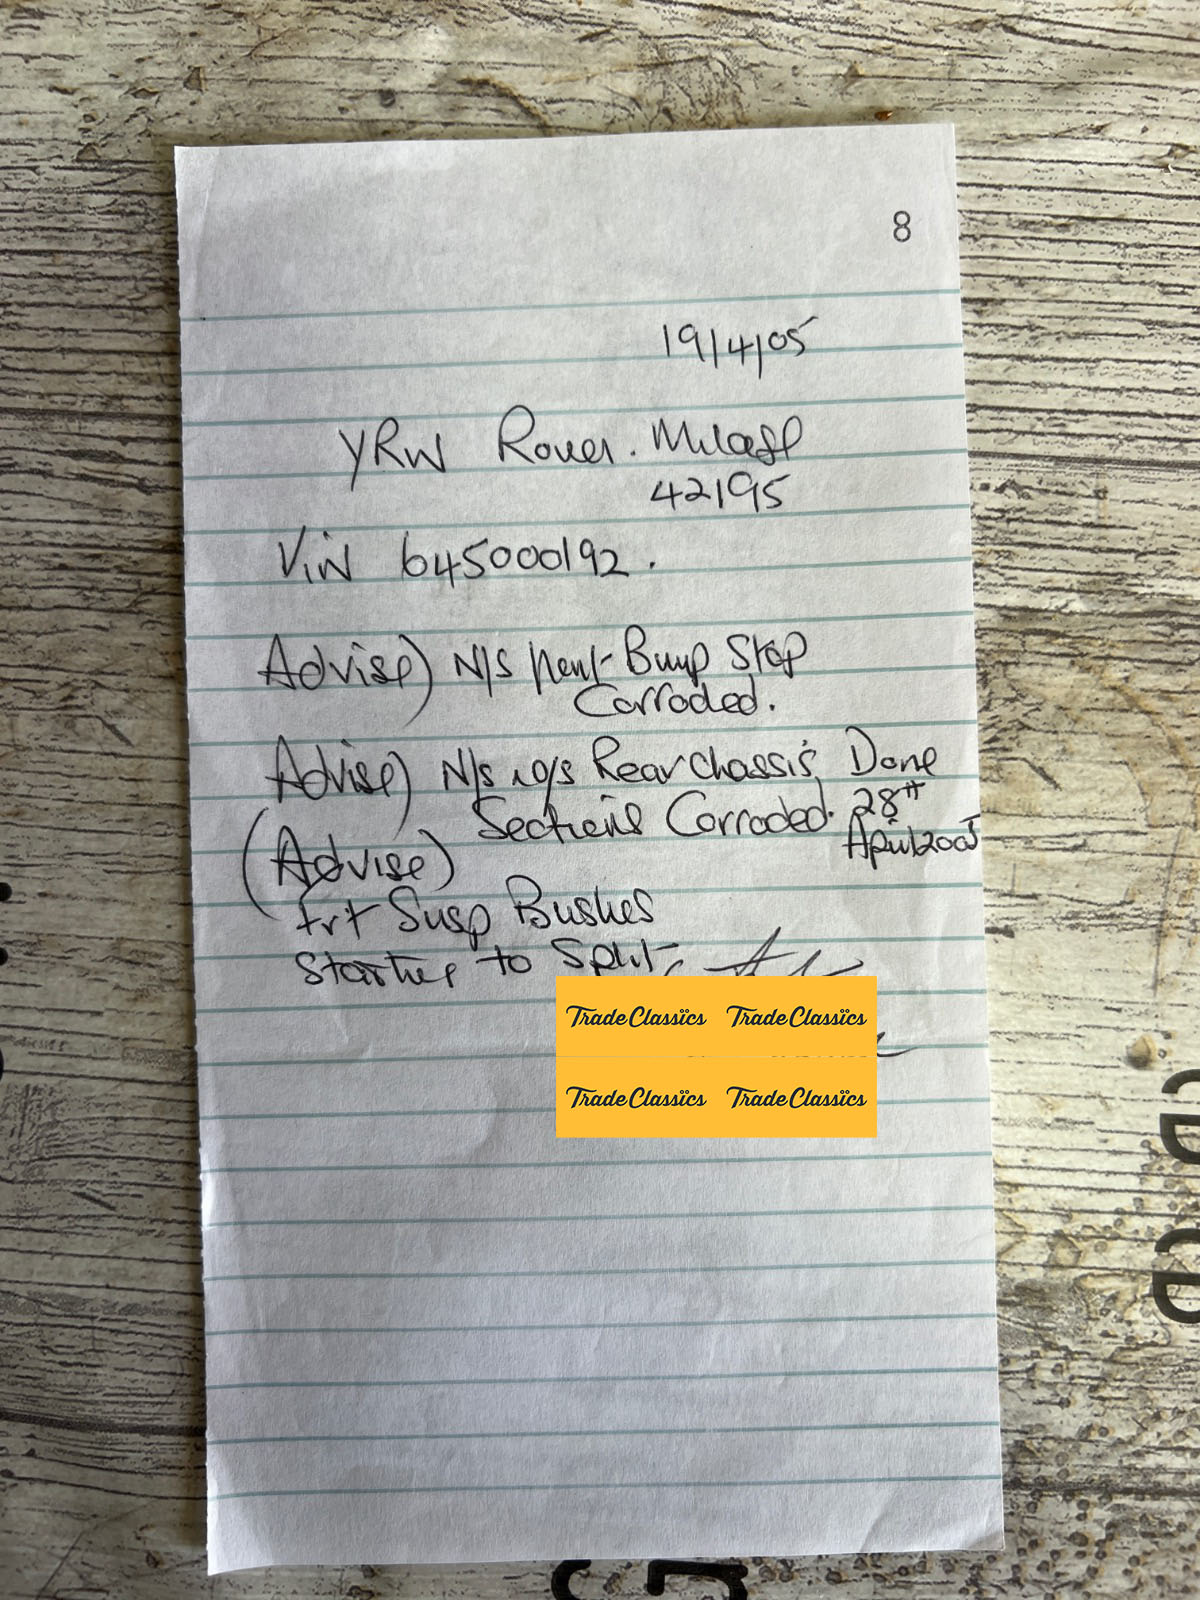 8
19/4/05
YRW Rover. Mileage
42195
ViN 645000192.
Advise) N/S Bump Stop
Corroded.
Advise) N/s 10/s Rear chassis Done
Sections Corroded. 28th
(Advise) April 2005
frt Susp Bushes
Starting to Split
TradeClassics TradeClassics
TradeClassics TradeClassics